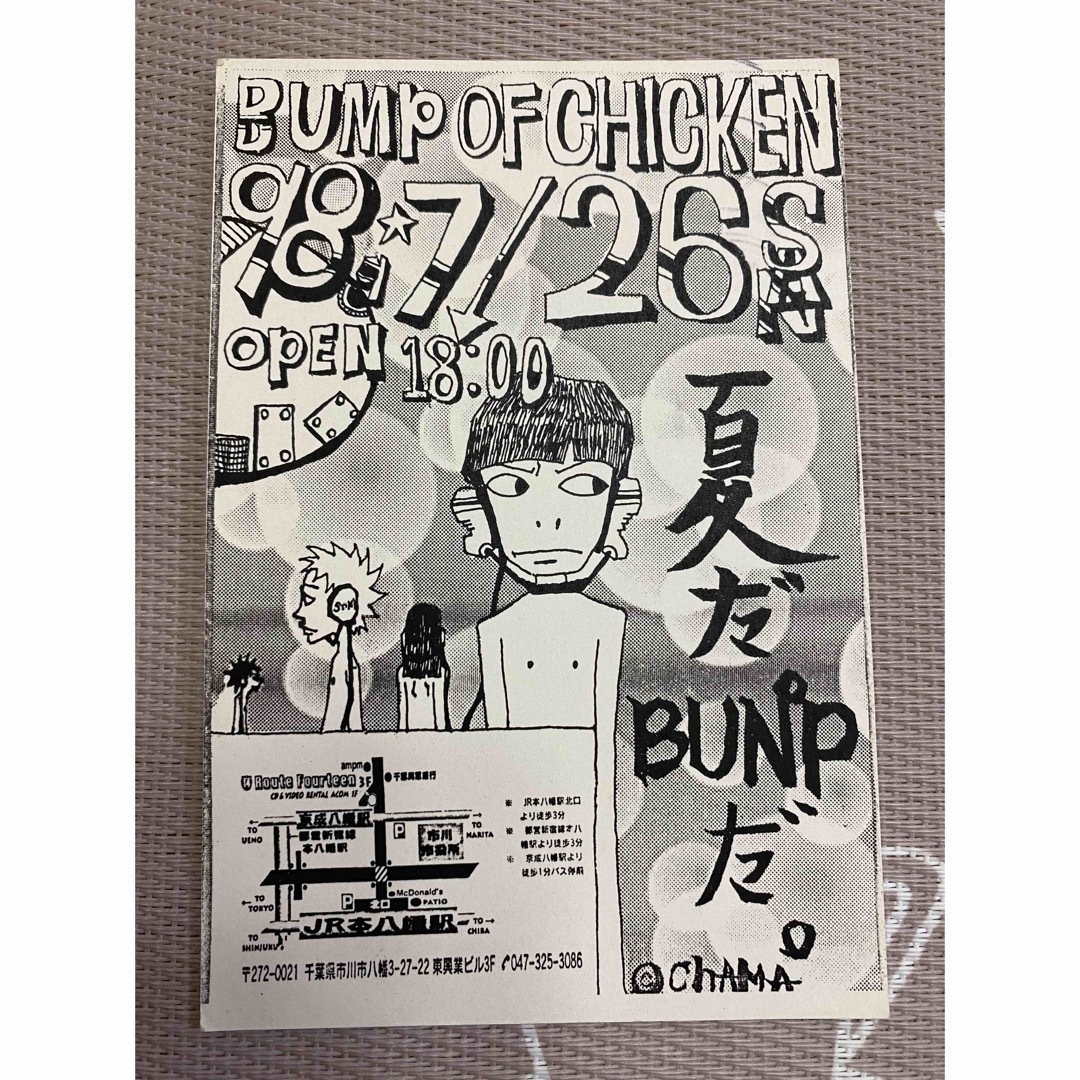 BUMP OF CHICKEN
98★7/26 SUN
OPEN 18:00
夏だ
BUMPだ。
STM
Route Fourteen 3F
CD & VIDEO RENTAL ACOM 1F
ampm
千葉興業銀行
京成八幡駅
都営新宿線
本八幡駅
TO
UENO
P
市川
市役所
TO
NARITA
McDonald's
PATIO
P
北口
TO
TOKYO
JR本八幡駅
TO
SHINJUKU
TO
CHIBA
※ JR本八幡駅北口
より徒歩3分
※ 都営新宿線本八
幡駅より徒歩3分
※ 京成八幡駅より
徒歩1分バス停前
〒272-0021 千葉県市川市八幡3-27-22 東興業ビル3F ✆047-325-3086
©CHAMA